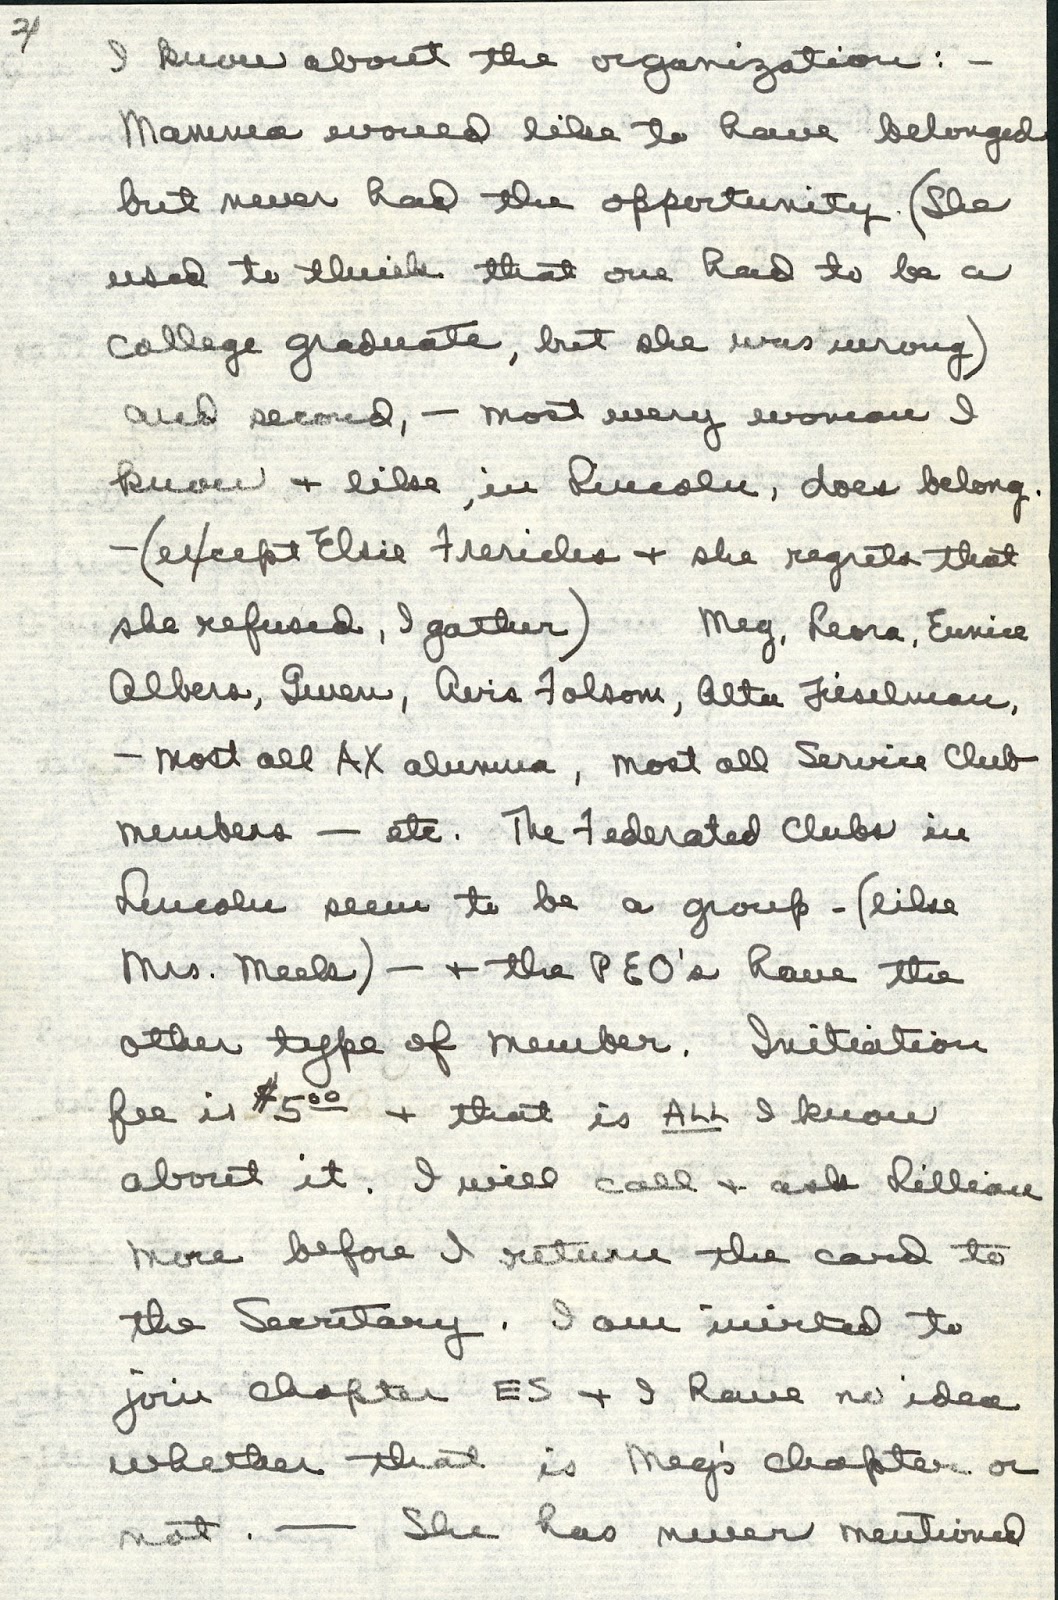 I know about the organization: -
Mamma would like to have belonged
but never had the opportunity. (She
used to think that one had to be a
college graduate, but she was wrong)
and second, - most every woman I
know + like, in Lincoln, does belong.
- (except Elsie Frerichs + she regrets that
she refused, I gather) Meg, Leora, Eunice
Albers, Gwen, Avis Folsom, Alta Fieselman,
- most all AX alumna, most all Service Club
members - etc. The Federated Clubs in
Lincoln seem to be a group - (like
Mrs. Meeks) - + the PEO's have the
other type of member. Initiation
fee is $5.00 + that is ALL I know
about it. I will call + ask Lillian
more before I return the card to
the Secretary. I am invited to
join chapter ES + I have no idea
whether that is Meg's chapter or
not. — She has never mentioned